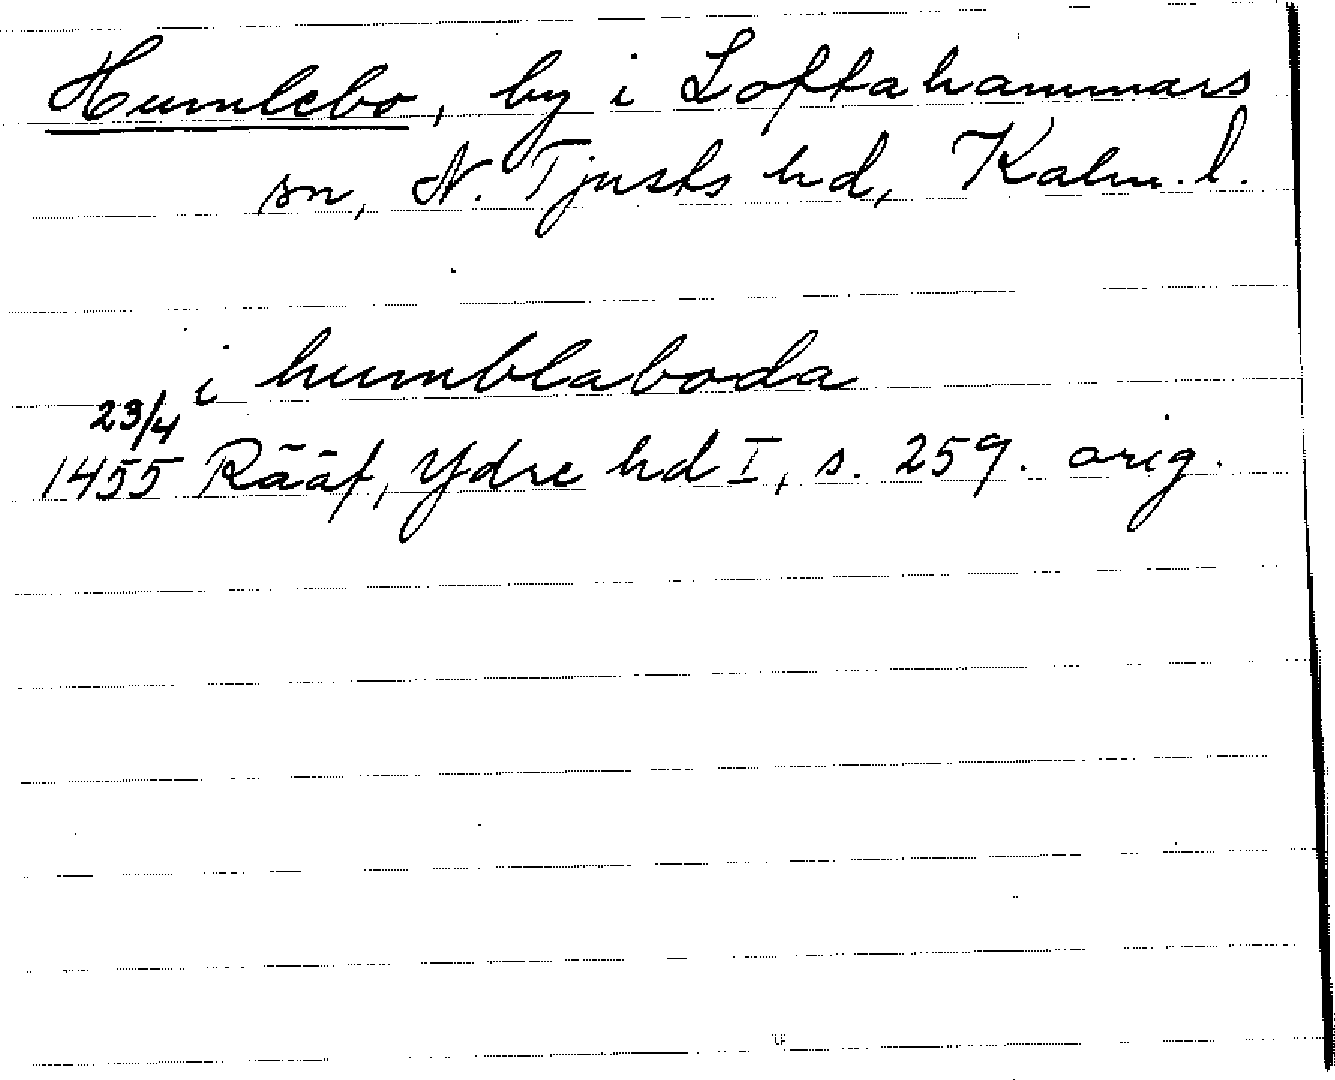 Humlebo, by i Loftahammars
sn, N. Tjusts hd, Kalm. l.
i humblaboda
23/4
1455 Rääf, Ydre hd I, s. 259. orig.